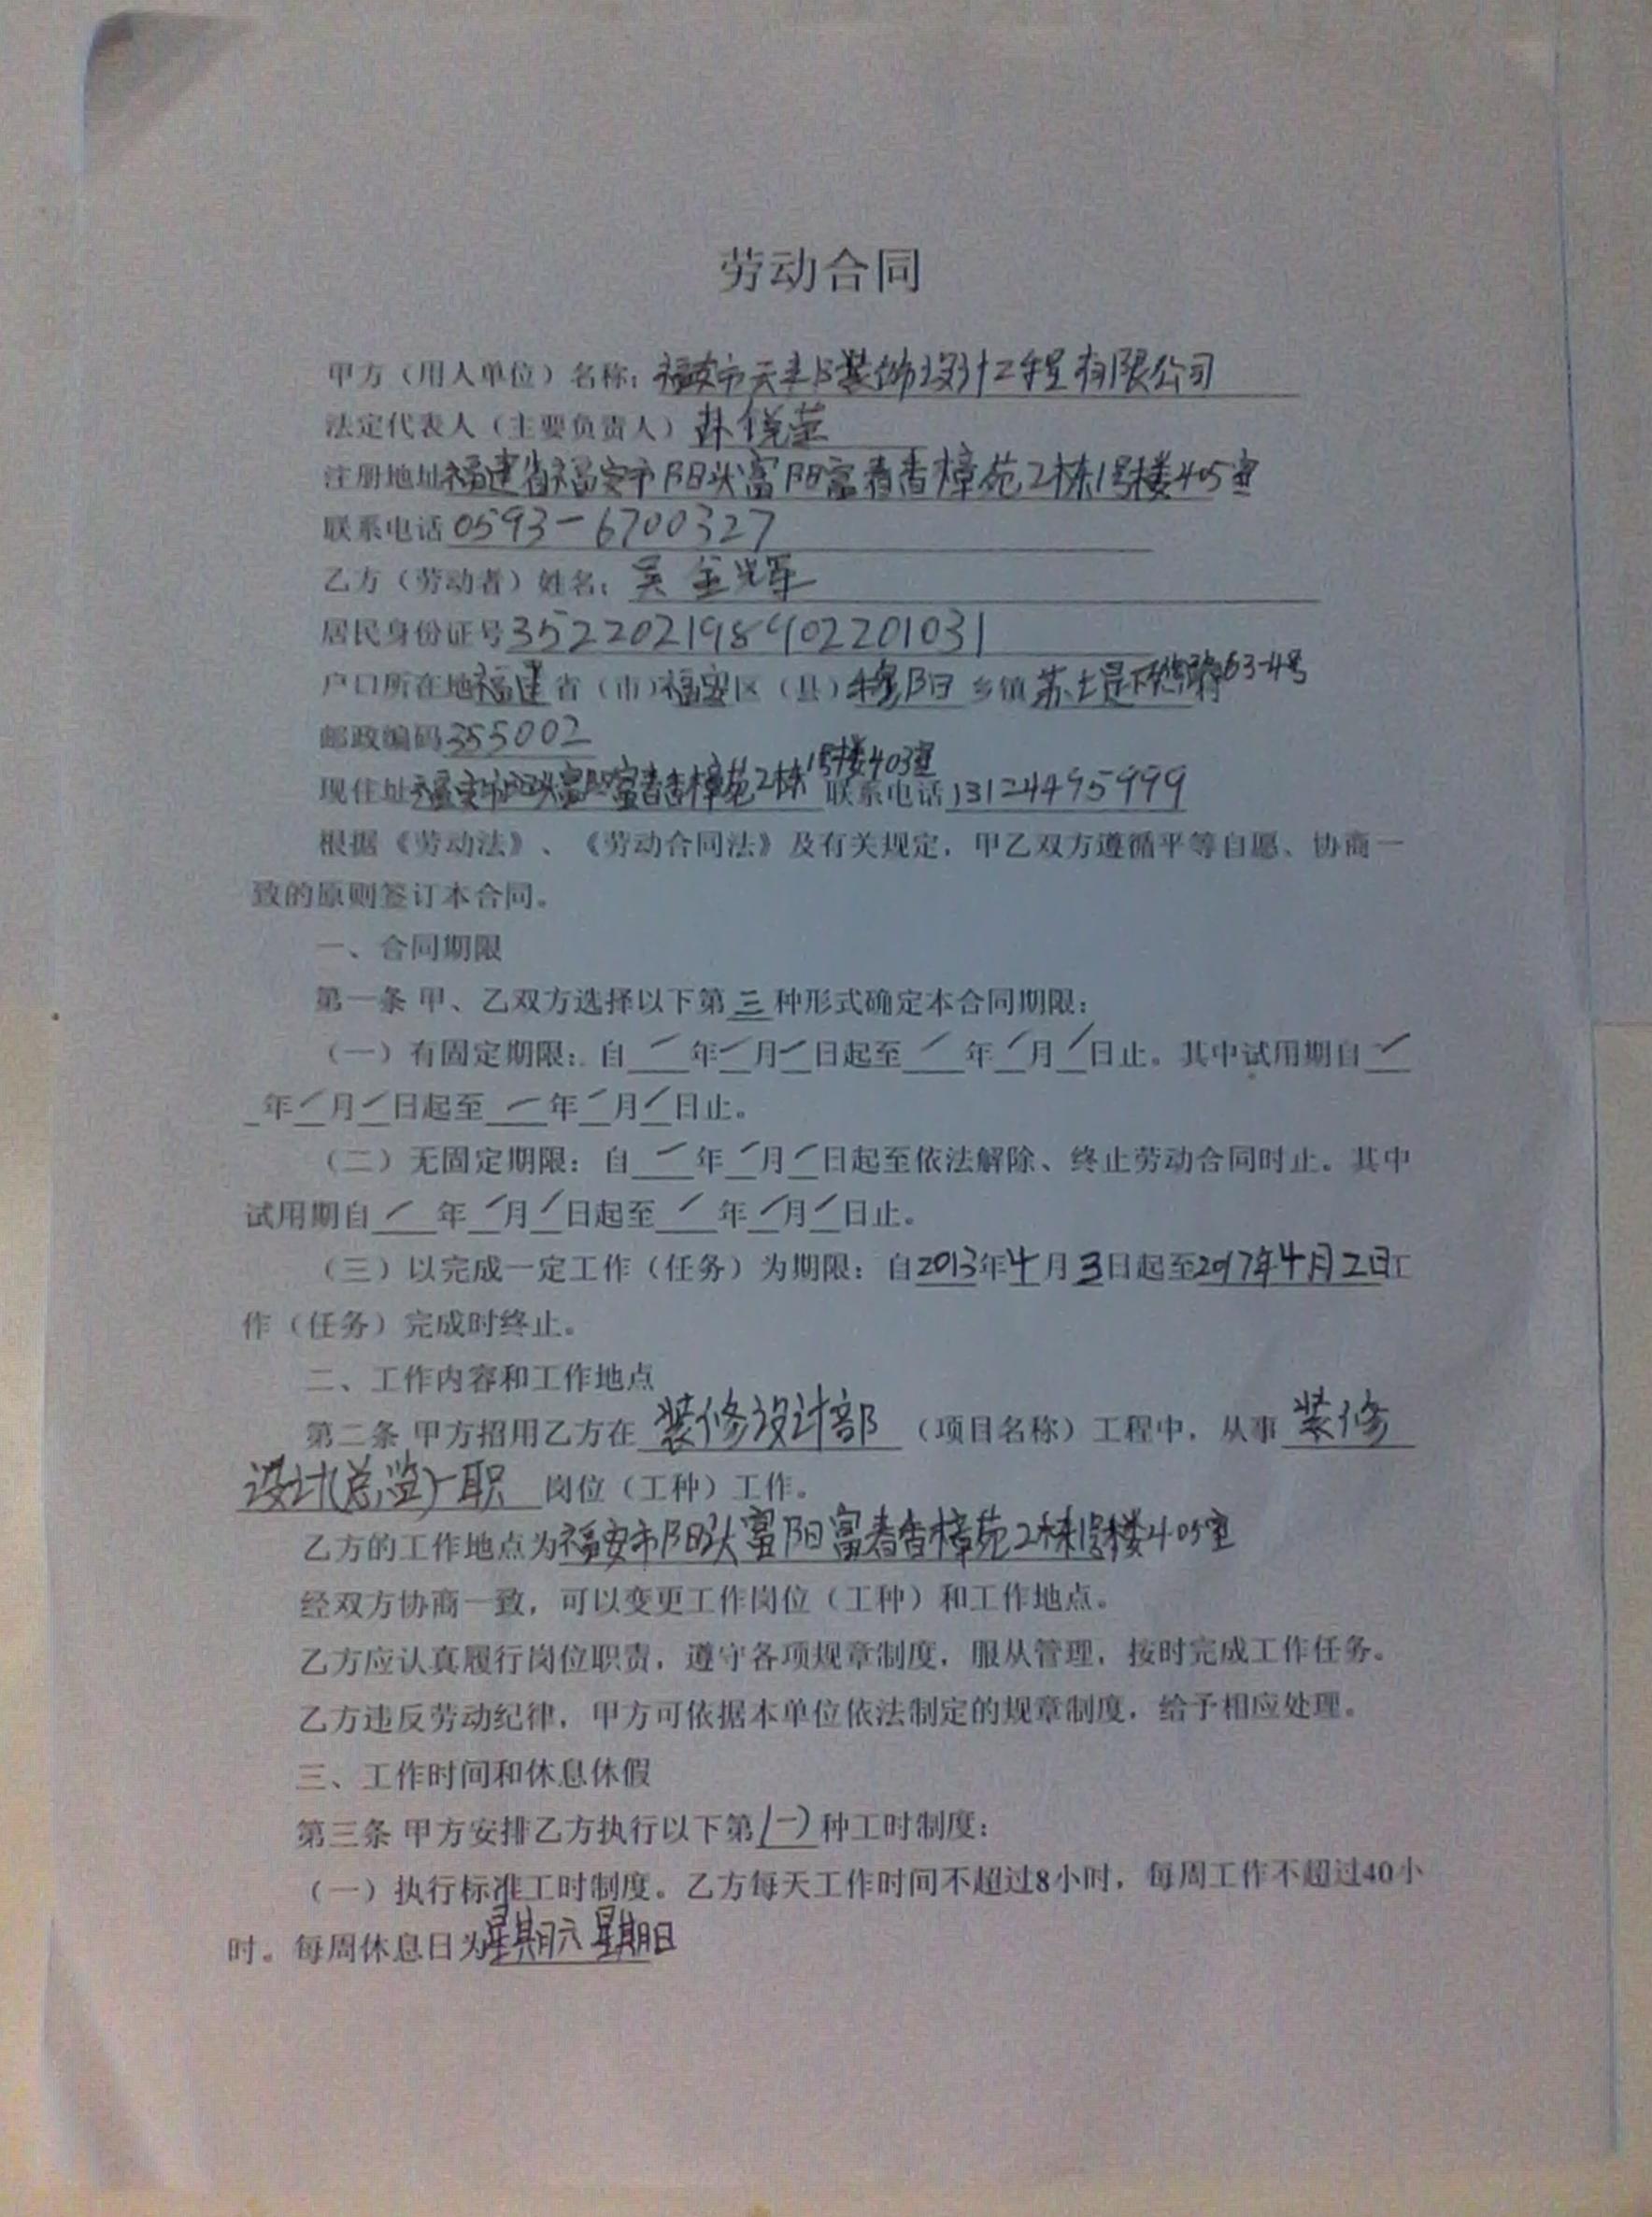 劳动合同
甲方（用人单位）名称：福安市天丰装饰设计工程有限公司
法定代表人（主要负责人）
注册地址福建省福安市阳头富阳富春香樟苑2栋1号楼405室
联系电话0593-6700327
乙方（劳动者）姓名：吴金辉
居民身份证号352202198902201031
户口所在地福建省（市）福安区（县）穆阳乡镇苏堤 63-4号
邮政编码355002
现住址福安市阳头富阳富春香樟苑2栋1号楼403室 联系电话13124495999
根据《劳动法》、《劳动合同法》及有关规定，甲乙双方遵循平等自愿、协商一
致的原则签订本合同。
一、合同期限
第一条 甲、乙双方选择以下第三种形式确定本合同期限：
（一）有固定期限：自/年/月/日起至/年/月/日止。其中试用期自/
年/月/日起至/年/月/日止。
（二）无固定期限：自/年/月/日起至依法解除、终止劳动合同时止。其中
试用期自/年/月/日起至/年/月/日止。
（三）以完成一定工作（任务）为期限：自2013年4月3日起至2017年4月2日工
作（任务）完成时终止。
二、工作内容和工作地点
第二条 甲方招用乙方在装修设计部（项目名称）工程中，从事装修
设计(总监)一职岗位（工种）工作。
乙方的工作地点为福安市阳头富阳富春香樟苑2栋1号楼405室
经双方协商一致，可以变更工作岗位（工种）和工作地点。
乙方应认真履行岗位职责，遵守各项规章制度，服从管理，按时完成工作任务。
乙方违反劳动纪律，甲方可依据本单位依法制定的规章制度，给予相应处理。
三、工作时间和休息休假
第三条 甲方安排乙方执行以下第(一)种工时制度：
（一）执行标准工时制度。乙方每天工作时间不超过8小时，每周工作不超过40小
时。每周休息日为星期六 星期日